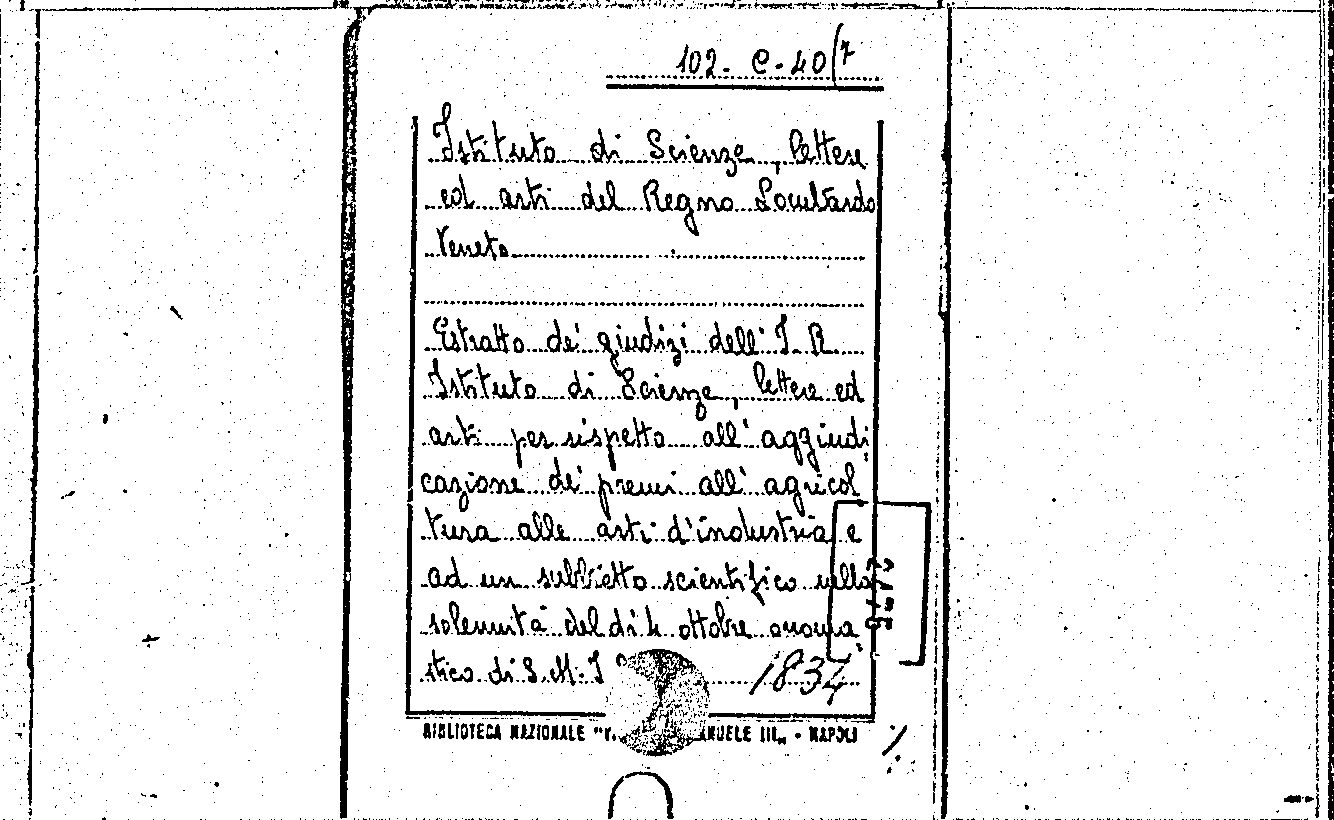 102- C-40(7
Istituto di Scienze, lettere
ed arti del Regno Locubardo
Veneto
Estratto de' giudizi dell' I. R.
Istituto di Scienze, lettere ed
arti per rispetto all' aggiudi
cazione de' premi all' agricol
tura alle arti d'industria e
ad un subbietto scientifico nella
solennità del dì 4 ottobre onoma
stico di S. M. I
1834
BIBLIOTECA NAZIONALE "V. ANUELE III„ - NAPOLI